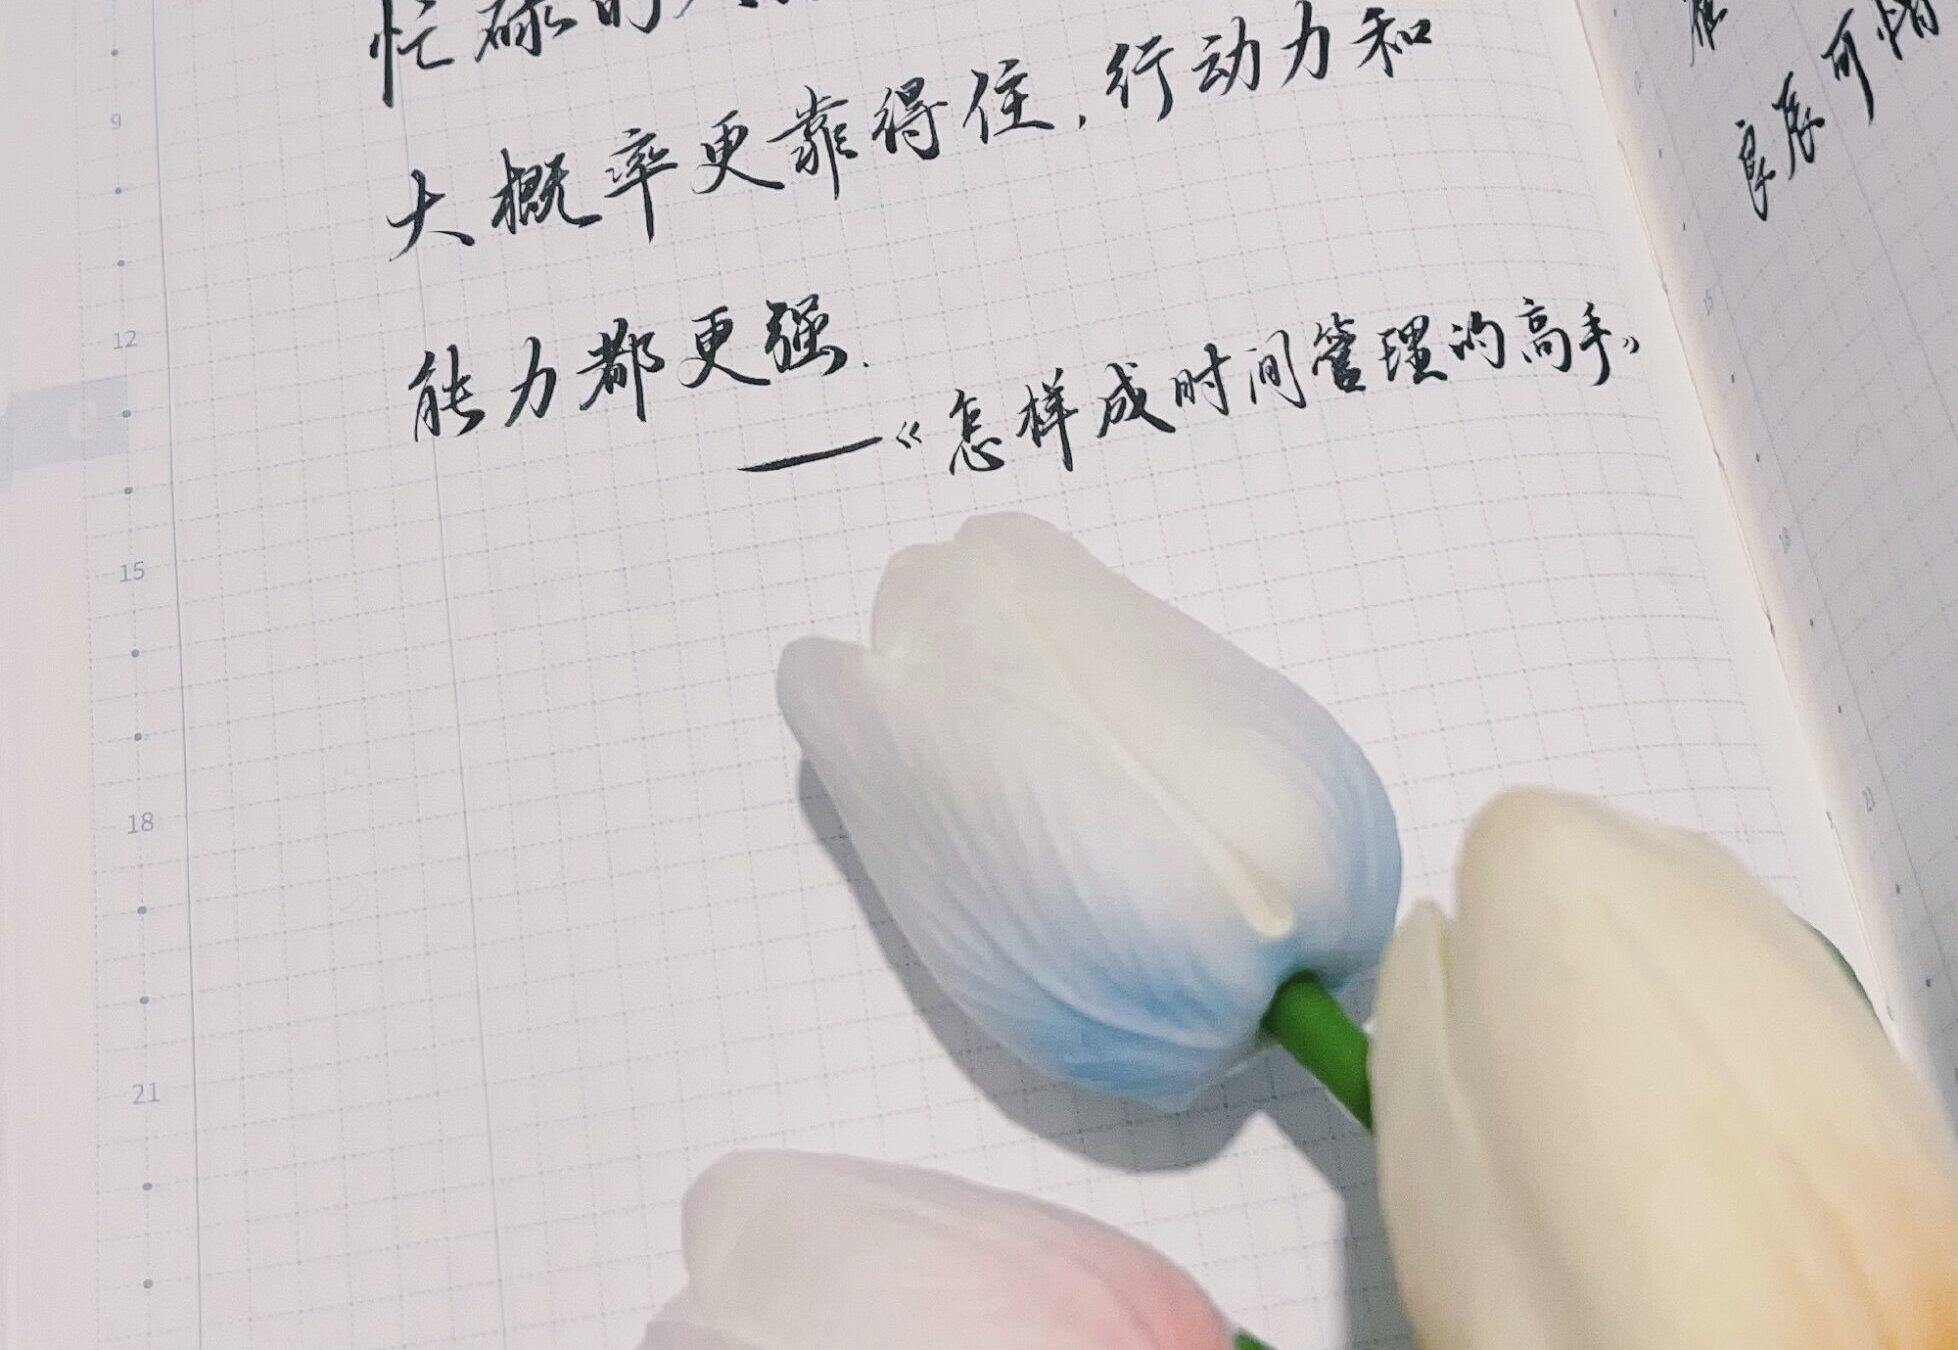 忙碌的人
大概率更靠得住，行动力和
能力都更强.
——《怎样成时间管理的高手》
9
12
15
18
21
可惜
15
18
21